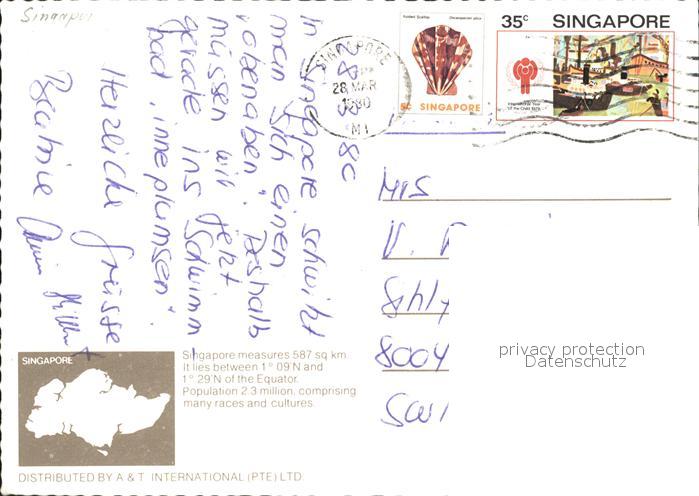 Singapore
8c
In Singapore schwitzt
man sich einen
Deshalb
müssen wir jetzt
gerade ins Schwimm-
bad „inneplumsen".
Herzliche Grüsse
SINGAPORE
28 MAR
1980
5c SINGAPORE
35c SINGAPORE
International Year
of the Child 1979
Mrs
8004
privacy protection
Datenschutz
SINGAPORE
Singapore measures 587 sq km.
It lies between 1° 09'N and
1° 29'N of the Equator.
Population 2.3 million, comprising
many races and cultures.
DISTRIBUTED BY A & T INTERNATIONAL (PTE) LTD.